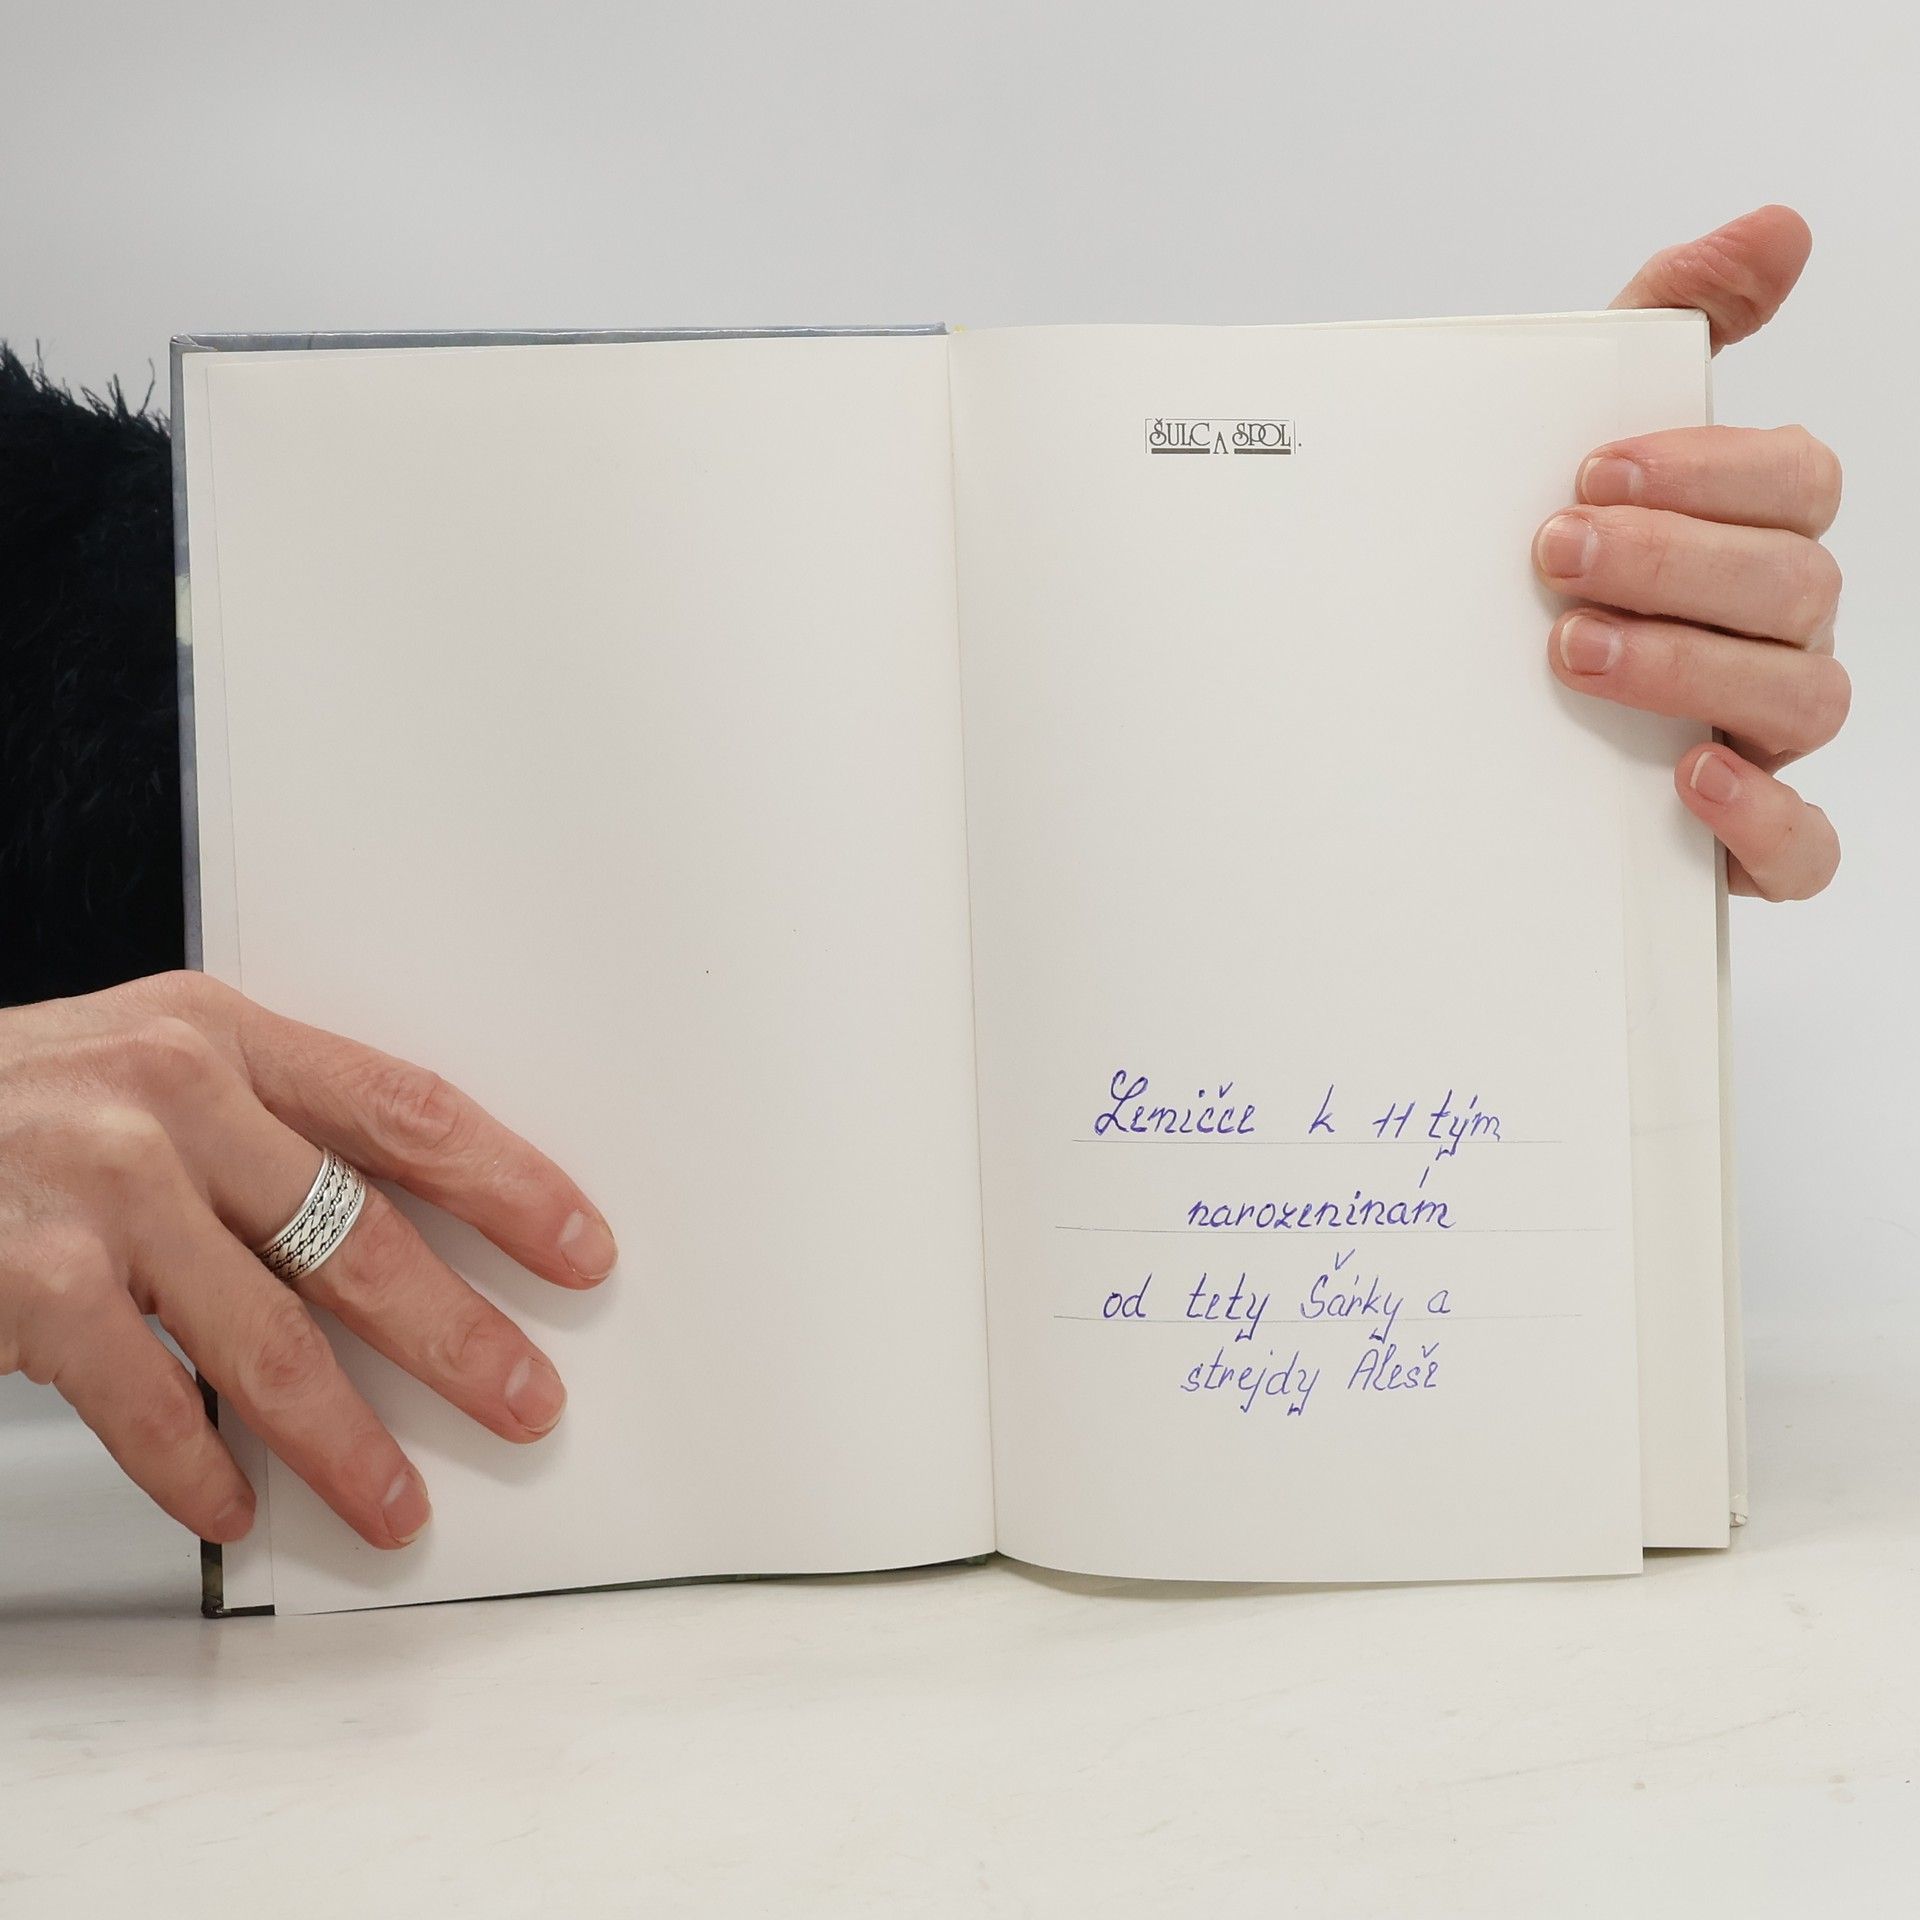 ŠULC A SPOL.
Leničce k 11 tým
narozeninám
od tety Šárky a
strejdy Aleše